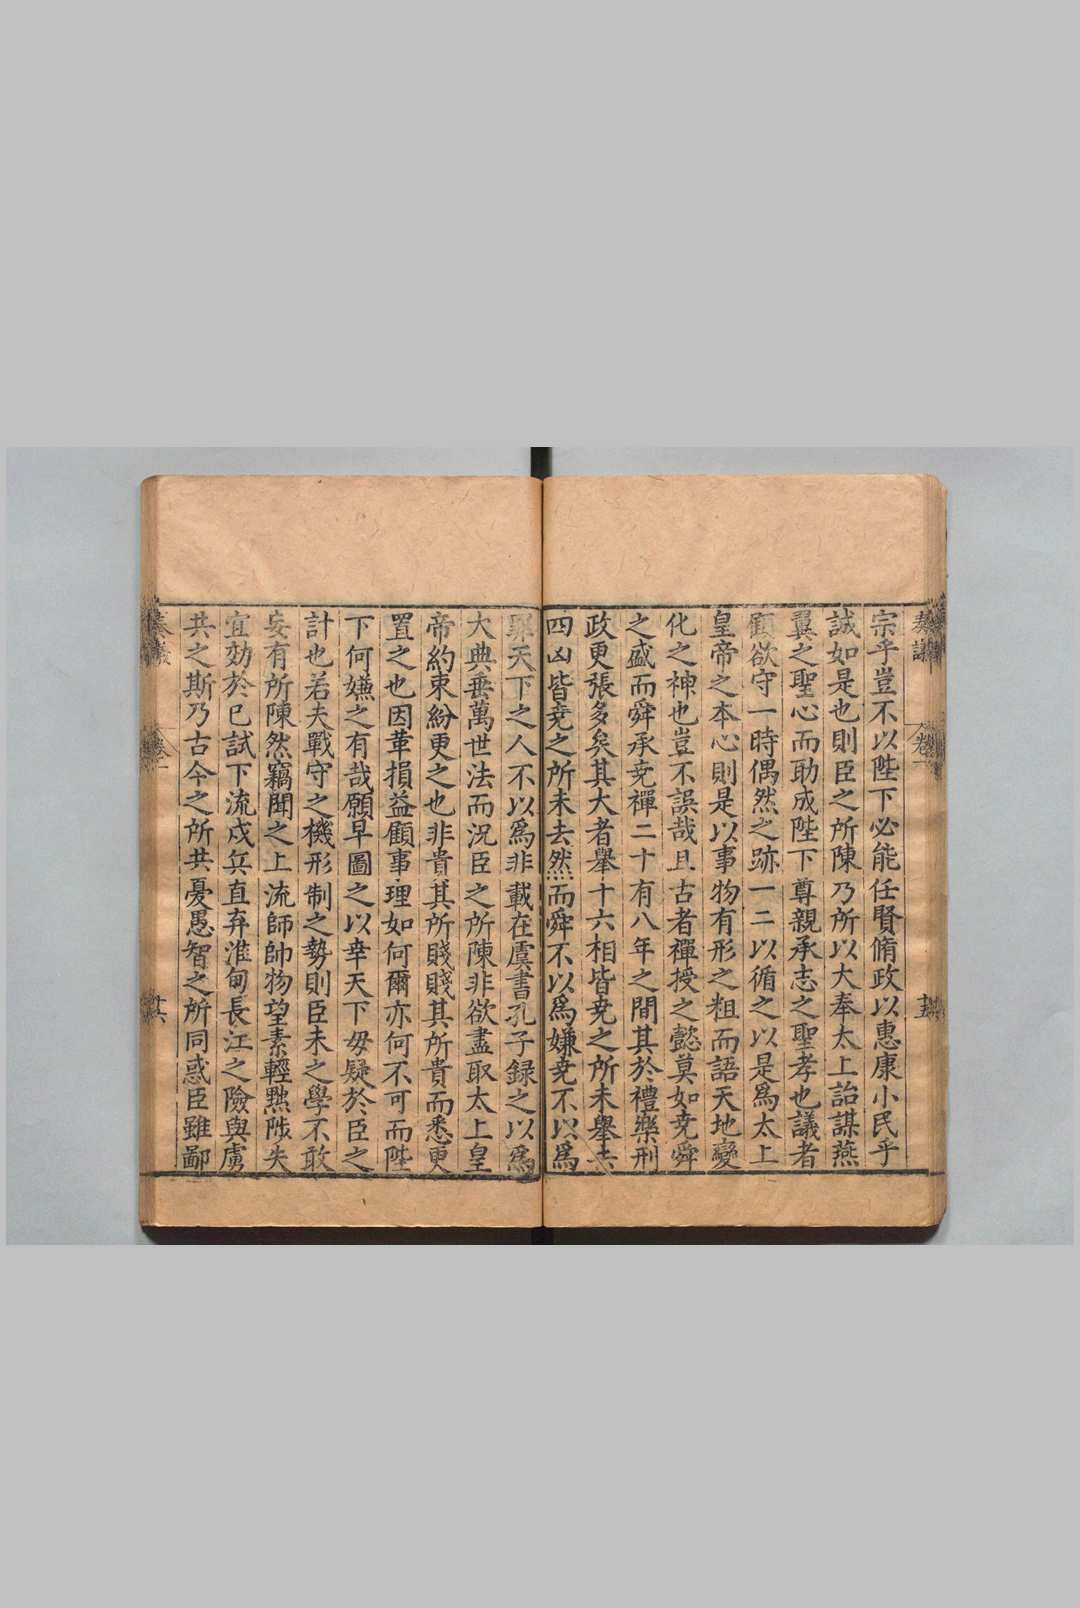 奏議 卷一 十五
宗乎豈不以陛下必能任賢脩政以惠康小民乎
誠如是也則臣之所陳乃所以大奉太上詒謀燕
翼之聖心而助成陛下尊親承志之聖孝也議者
顧欲守一時偶然之跡一二以循之以是爲太上
皇帝之本心則是以事物有形之粗而語天地變
化之神也豈不誤哉且古者禪授之懿莫如尭舜
之盛而舜承尭禪二十有八年之間其於禮樂刑
政更張多矣其大者舉十六相皆尭之所未舉去
四凶皆尭之所未去然而舜不以爲嫌尭不以爲
罪天下之人不以爲非載在虞書孔子録之以爲
大典垂萬世法而況臣之所陳非欲盡取太上皇
帝約束紛更之也非貴其所賤賤其所貴而悉更
置之也因革損益顧事理如何爾亦何不可而陛
下何嫌之有哉願早圖之以幸天下毋疑於臣之
計也若夫戰守之機形制之勢則臣未之學不敢
妄有所陳然竊聞之上流師帥物望素輕黙陟失
宜効於已試下流戍兵直弃淮甸長江之險與虜
共之斯乃古今之所共憂愚智之所同惑臣雖鄙
奏議 卷一 十六